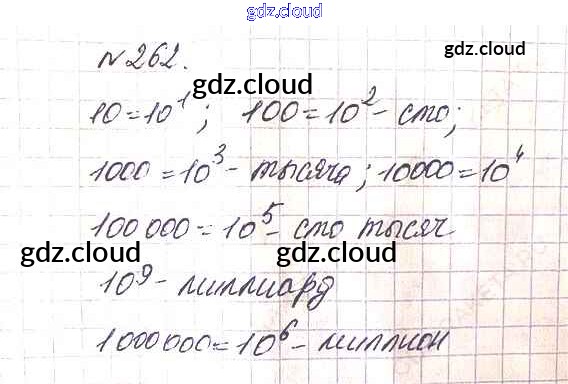 gdz.cloud
№262.
gdz.cloud
gdz.cloud
10=10¹; 100=10²- сто;
1000=10³- тысяча; 10000=10⁴
100 000=10⁵- сто тысяч
gdz.cloud gdz.cloud
10⁹- миллиард
1000000=10⁶- миллион